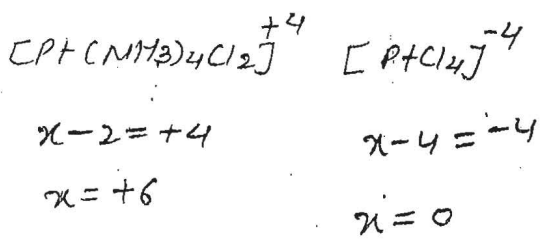 [Pt(NH3)4Cl2]+4 [PtCl4]-4
x-2=+4 x-4=-4
x=+6 x=0